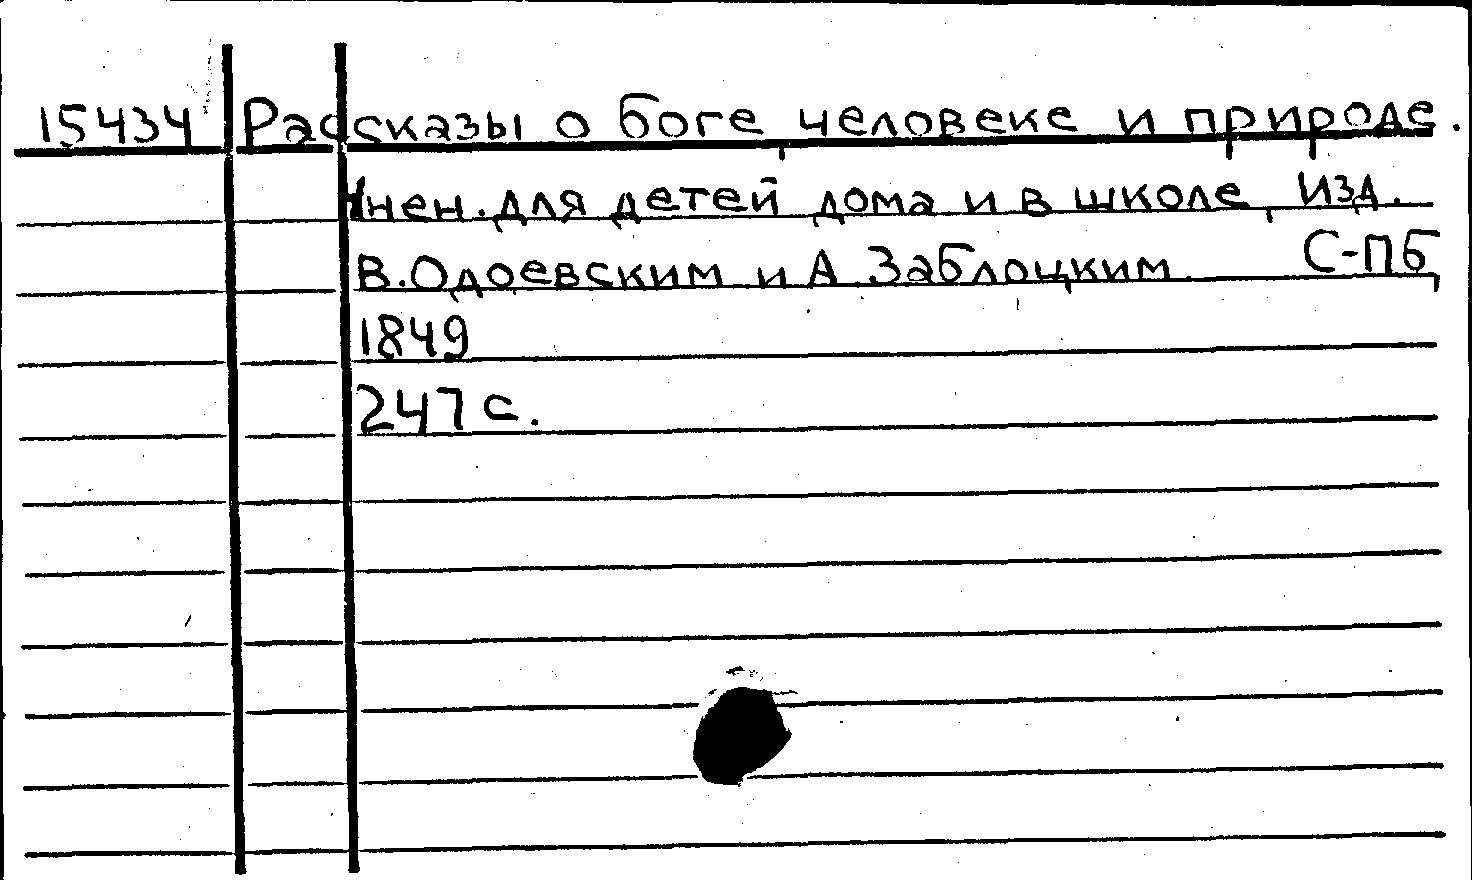 15434 Рассказы о боге, человеке и природе.
Чнен. для детей дома и в школе, Изд.
В. Одоевским и А. Заблоцким. С-Пб,
1849
247 с.